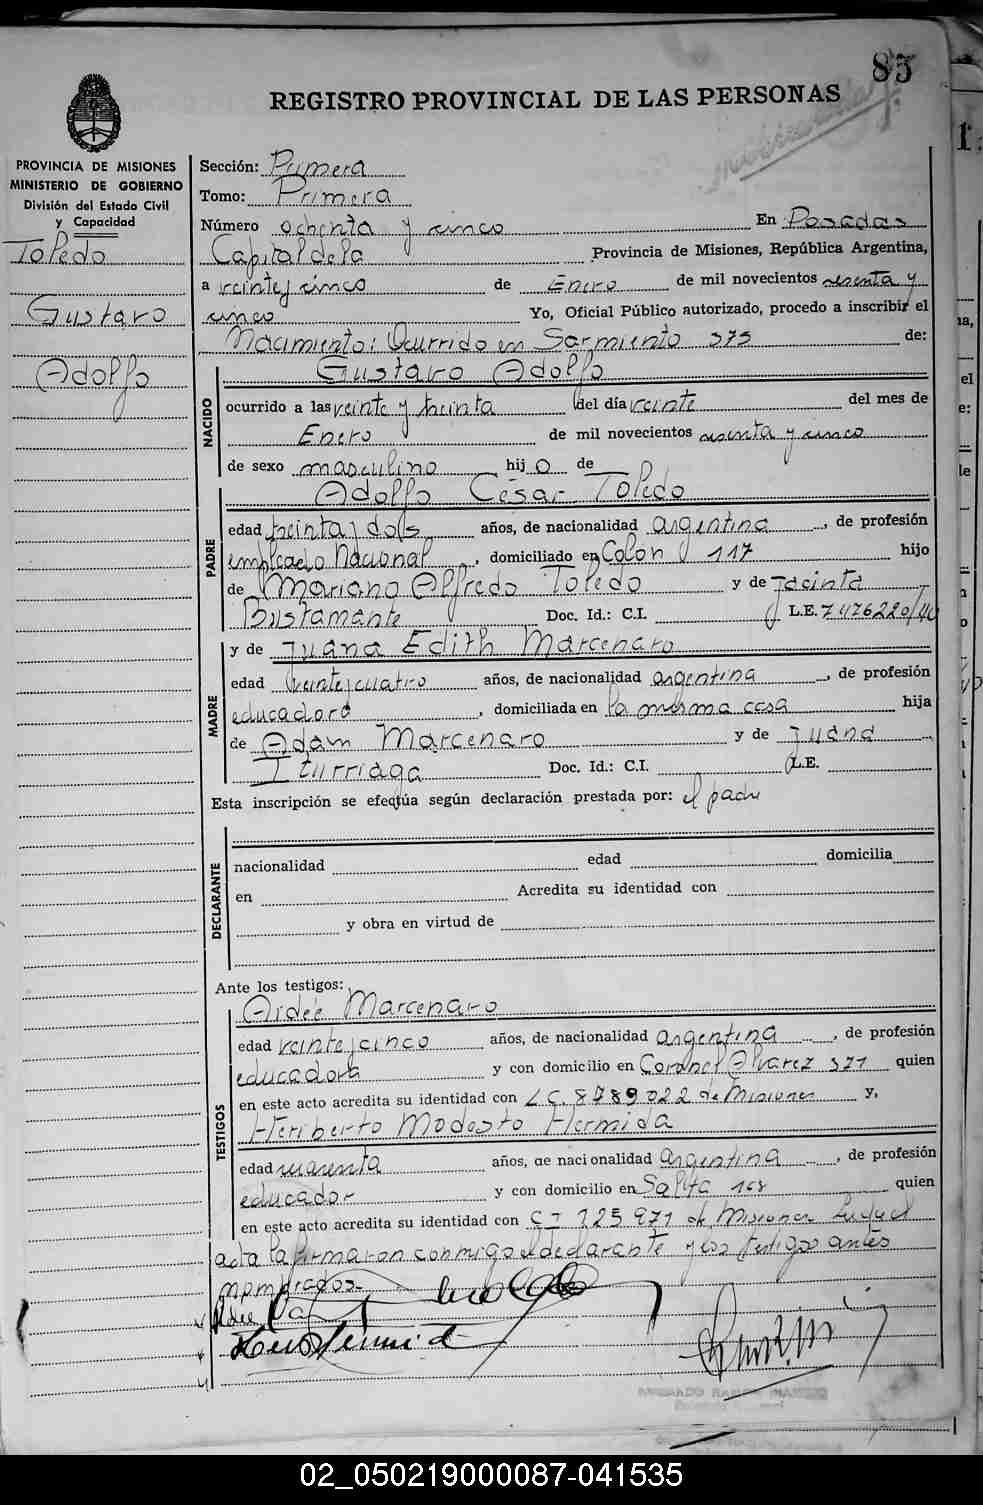 85
REGISTRO PROVINCIAL DE LAS PERSONAS
PROVINCIA DE MISIONES
MINISTERIO DE GOBIERNO
División del Estado Civil
y Capacidad
Toledo
Gustavo
Adolfo
Sección: Primera
Tomo: Primera
Número ochenta y cinco En Posadas
Capital de la Provincia de Misiones, República Argentina,
a veinte y cinco de Enero de mil novecientos sesenta y
cinco Yo, Oficial Público autorizado, procedo a inscribir el
Nacimiento: Ocurrido en Sarmiento 375 de:
NACIDO
Gustavo Adolfo
ocurrido a las veinte y treinta del día veinte del mes de
Enero de mil novecientos sesenta y cinco
de sexo masculino hijo de
PADRE
Adolfo César Toledo
edad treinta y dos años, de nacionalidad argentina, de profesión
empleado Nacional, domiciliado en Colón 117 hijo
de Mariano Alfredo Toledo y de Jacinta
Bustamante Doc. Id.: C.I. L.E. 7476220/
MADRE
y de Juana Edith Marcenaro
edad veinte y cuatro años, de nacionalidad argentina, de profesión
educadora, domiciliada en la misma casa hija
de Adam Marcenaro y de Juana
Iturriaga Doc. Id.: C.I. L.E.
Esta inscripción se efectúa según declaración prestada por: el padre
DECLARANTE
nacionalidad edad domicilia
en Acredita su identidad con
y obra en virtud de
Ante los testigos:
TESTIGOS
Aidée Marcenaro
edad veinte y cinco años, de nacionalidad argentina, de profesión
educadora y con domicilio en Coronel Alvarez 371 quien
en este acto acredita su identidad con L C. 8789022 de Misiones y,
Heriberto Modesto Hermida
edad cuarenta años, de nacionalidad argentina, de profesión
educador y con domicilio en Salta 168 quien
en este acto acredita su identidad con C I 125971 de Misiones
acta la firmaron conmigo el declarante y los testigos antes
nombrados.
02_050219000087-041535